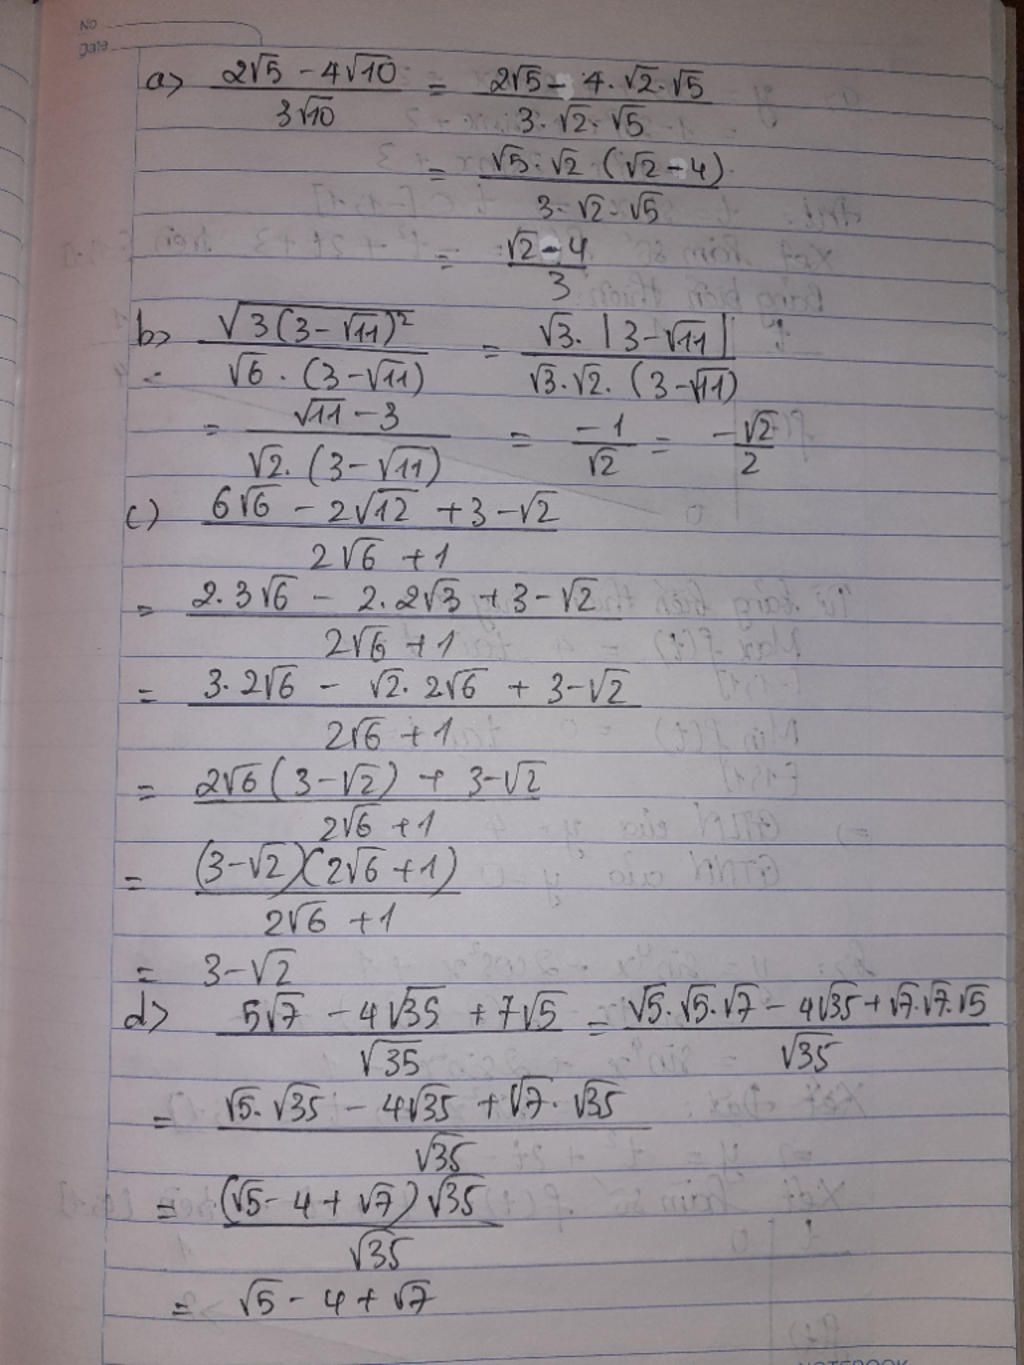 No
Date
a> (2√5 - 4√10)/(3√10) = (2√5 - 4.√2.√5)/(3.√2.√5)
= (√5.√2 (√2 - 4))/(3.√2.√5)
= (√2 - 4)/3
b> √(3(3-√11)²)/(√6.(3-√11)) = (√3.|3-√11|)/(√3.√2.(3-√11))
= (√11 - 3)/(√2.(3-√11)) = -1/√2 = -√2/2
c) (6√6 - 2√12 + 3 - √2)/(2√6 + 1)
= (2.3√6 - 2.2√3 + 3 - √2)/(2√6 + 1)
= (3.2√6 - √2.2√6 + 3 - √2)/(2√6 + 1)
= (2√6(3-√2) + 3-√2)/(2√6 + 1)
= ((3-√2)(2√6 + 1))/(2√6 + 1)
= 3-√2
d> (5√7 - 4√35 + 7√5)/√35 = (√5.√5.√7 - 4√35 + √7.√7.√5)/√35
= (√5.√35 - 4√35 + √7.√35)/√35
= ((√5 - 4 + √7)√35)/√35
= √5 - 4 + √7